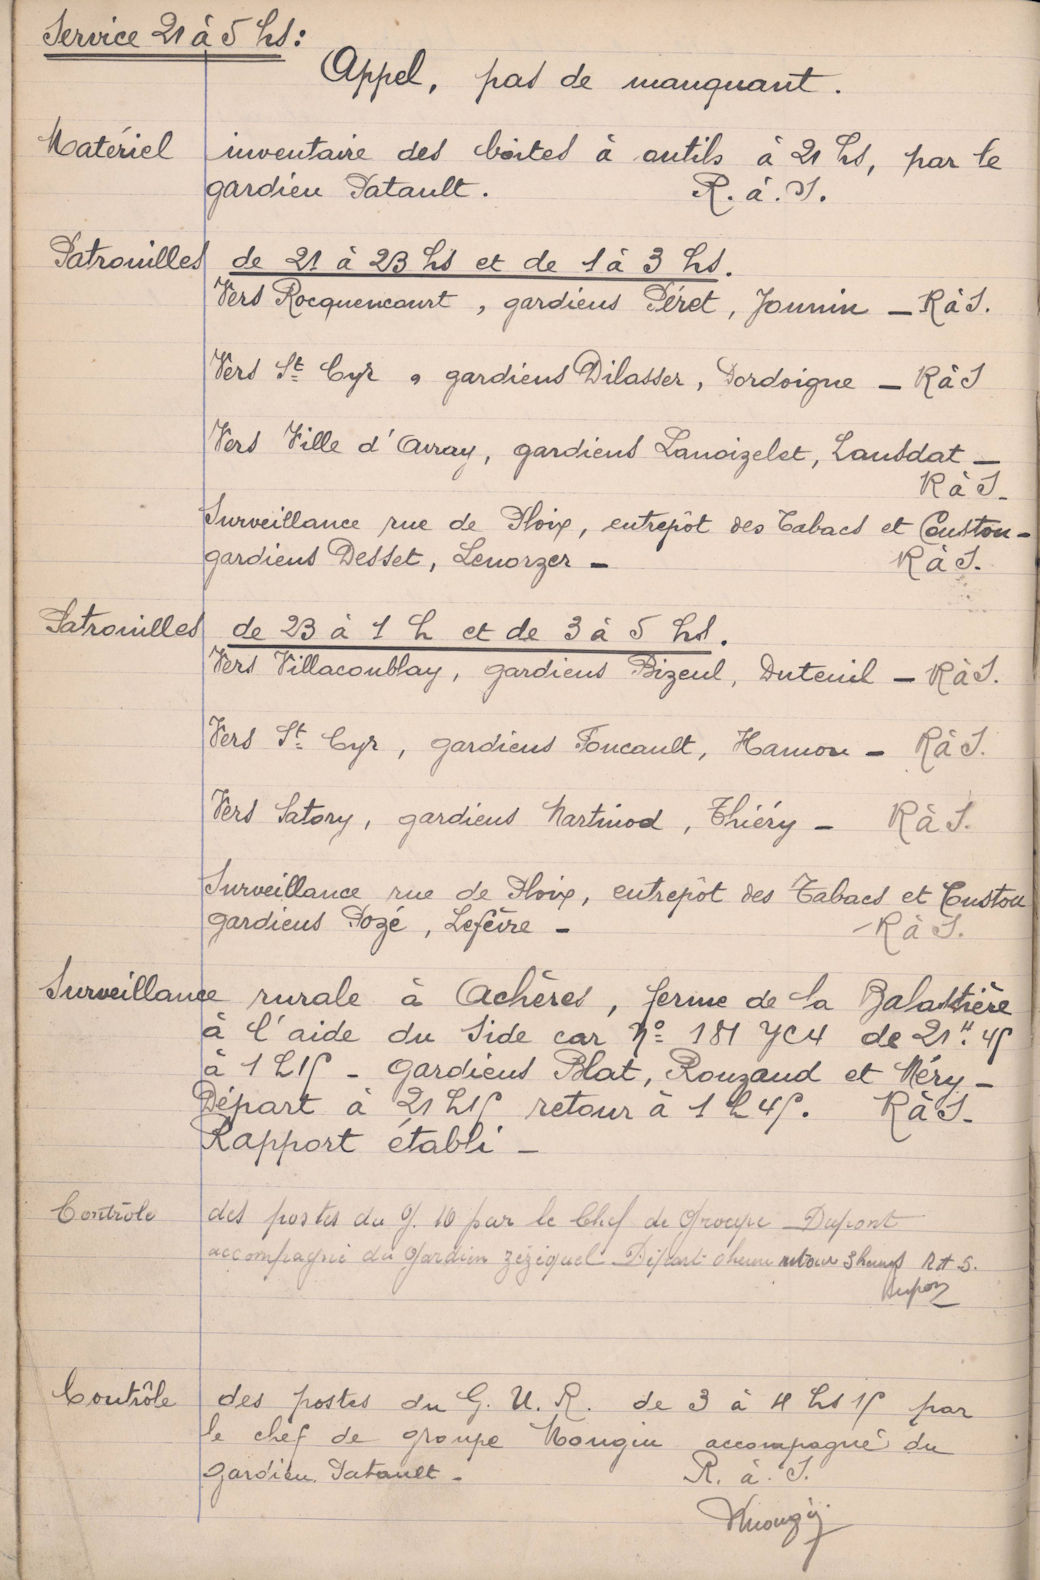 Service 21 à 5 hs:
Appel, pas de manquant.
Matériel inventaire des boites à outils à 21 hs, par le
gardien Patault. R. à. S.
Patrouilles de 21 à 23 hs et de 1 à 3 hs.
Vers Rocquencourt, gardiens Péret, Jounin – R à S.
Vers St Cyr, gardiens Dilasser, Dordoigne – R à S
Vers Ville d'Avray, gardiens Lanoizelet, Lansdat –
R à S.
Surveillance rue de Ploix, entrepôt des Tabacs et Couston -
gardiens Desset, Lenorzer – R à S.
Patrouilles de 23 à 1 h et de 3 à 5 hs.
Vers Villacoublay, gardiens Bizeul, Duteuil – R à S.
Vers St Cyr, gardiens Foucault, Hamon – R à S.
Vers Satory, gardiens Martinod, Thiéry – R à S.
Surveillance rue de Ploix, entrepôt des Tabacs et Coustou
gardiens Pozé, Lefèvre – R à S.
Surveillance rurale à Achères, ferme de la Balastière
à l'aide du Side car No 181 YC4 de 21h.45
à 1 h15 – gardiens Blat, Rouzaud et Méry –
Départ à 21 h15 retour à 1 h 45. R à S.
Rapport établi –
Contrôle des postes du G. 10 par le Chef de Groupe Dupont
accompagné du Gardien Zéziquel Départ heure retour 3 heures R A S.
Dupon
Contrôle des postes du G. U. R. de 3 à 4 hs 15 par
le chef de groupe Mongin accompagné du
gardien Patault – R. à. S.